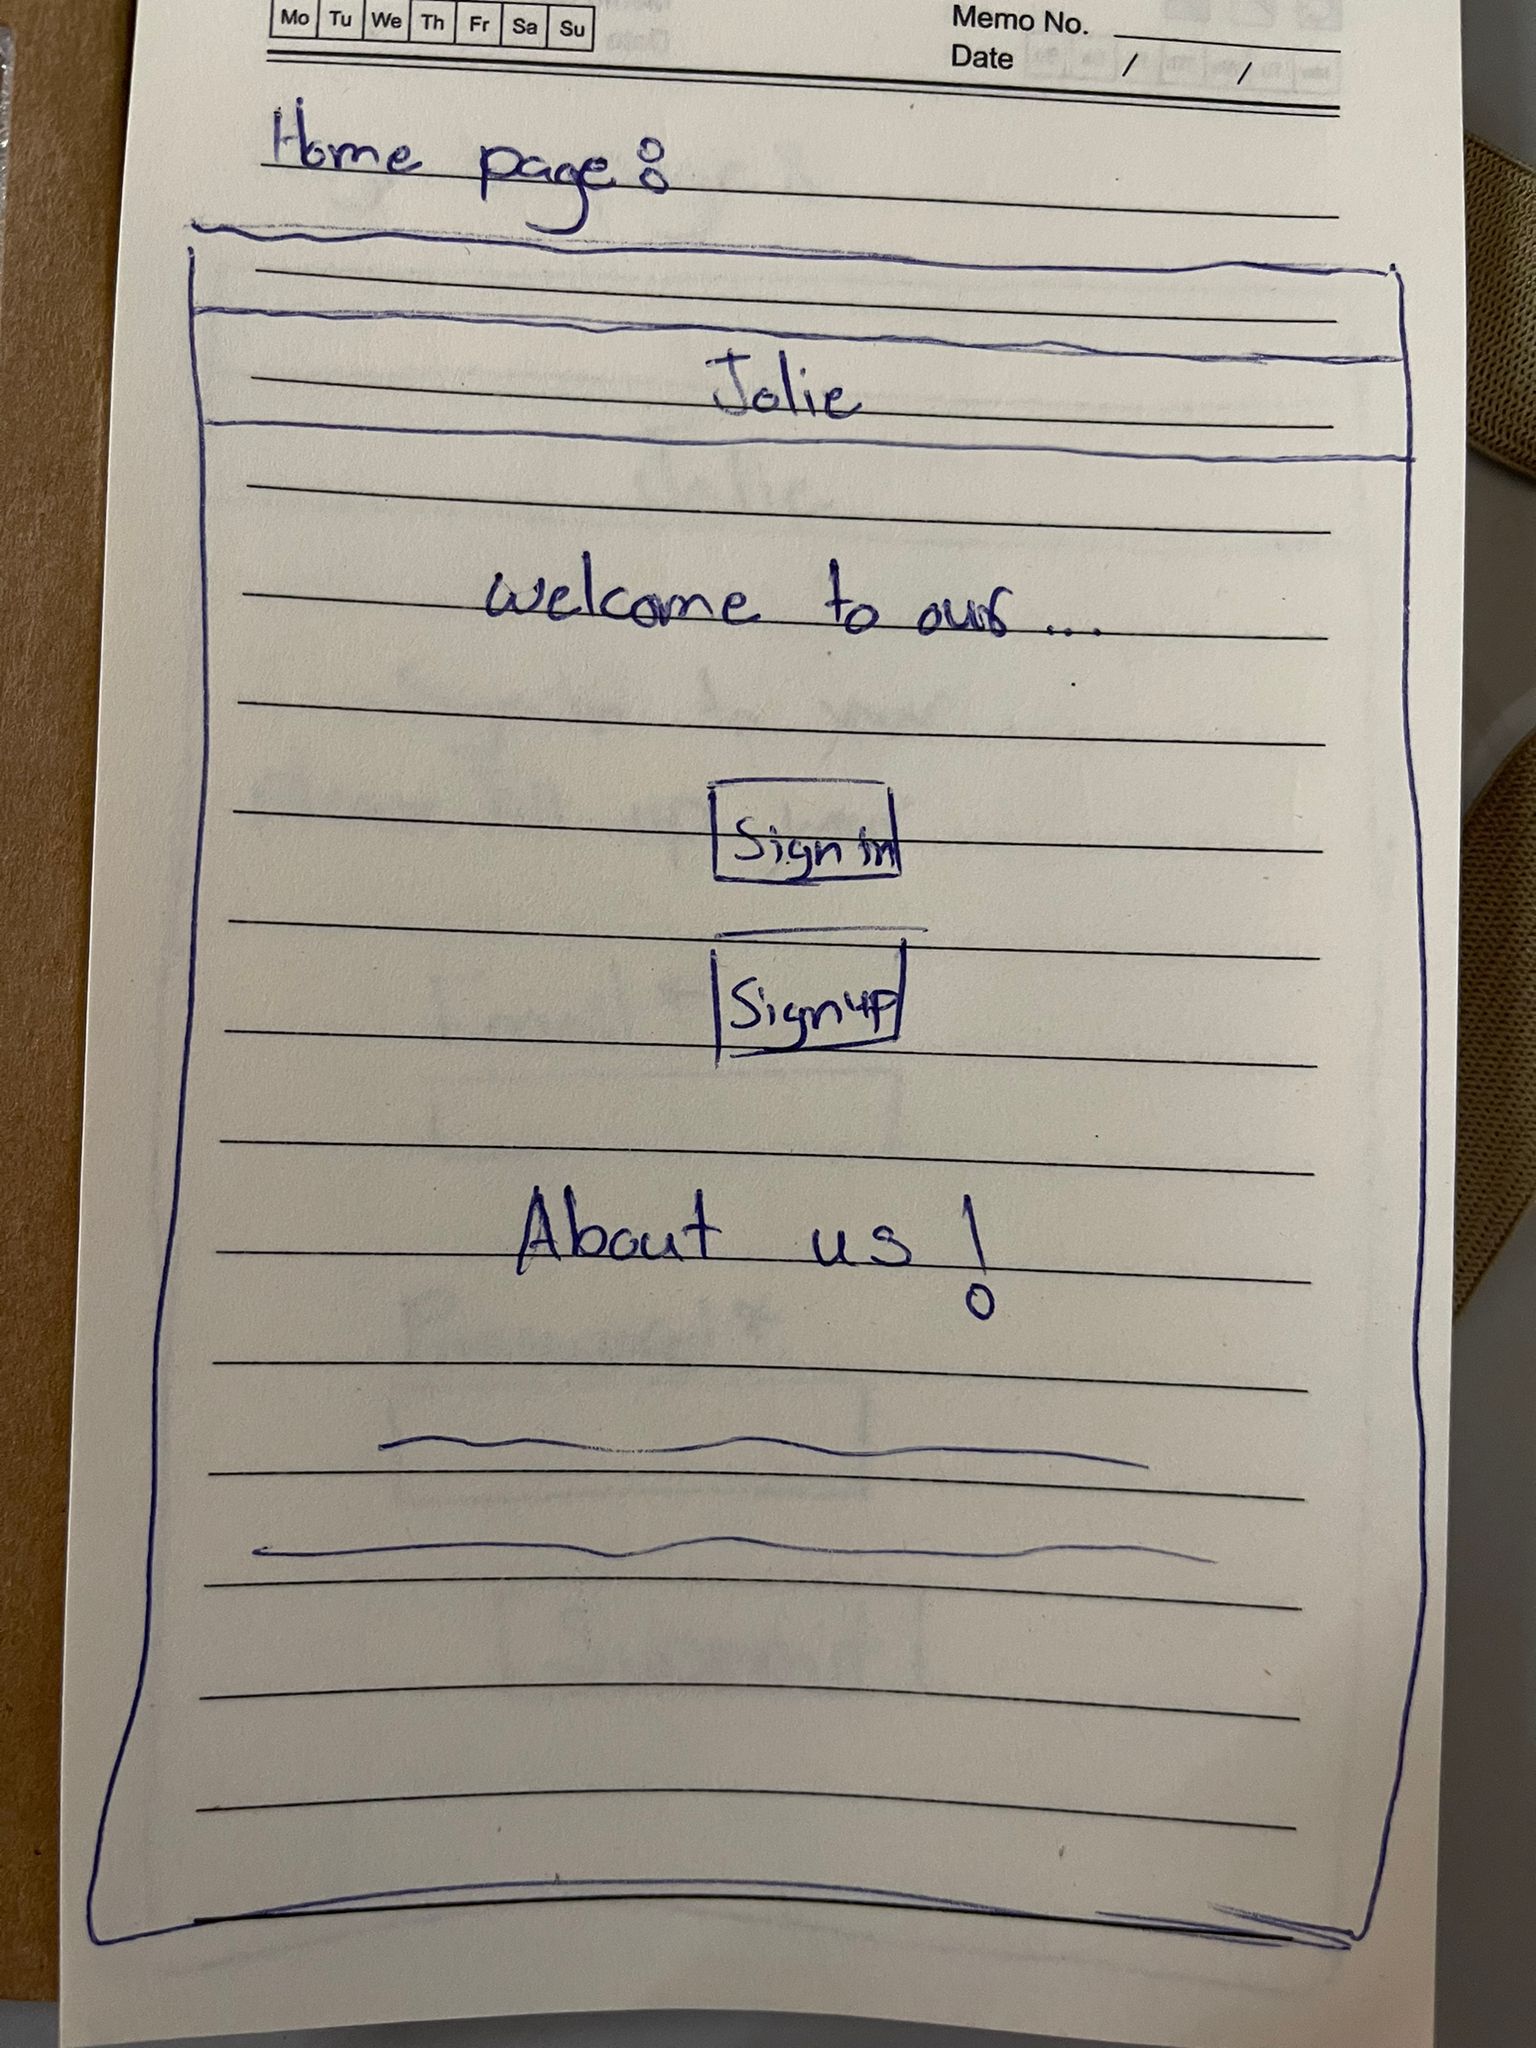 Mo Tu We Th Fr Sa Su
Memo No.
Date / /
Home page:
Jolie
welcome to our ...
Sign in
Sign up
About us !